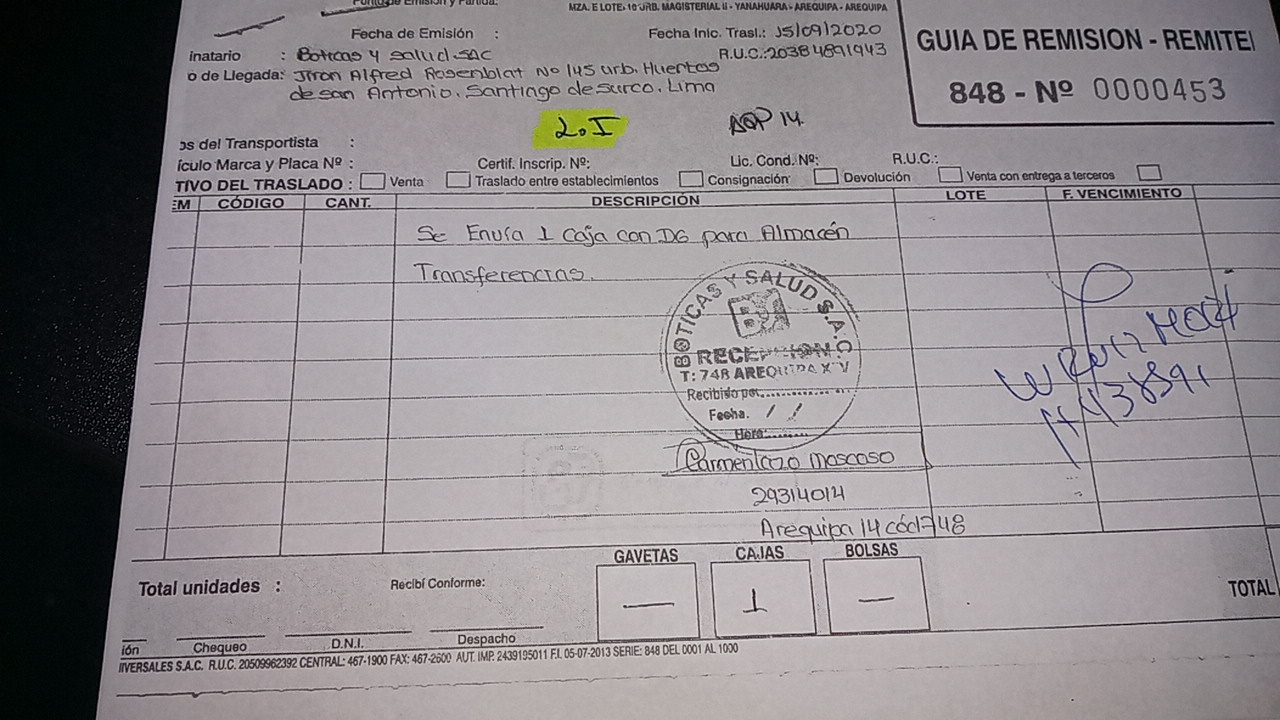 Punto de Emisión y Partida:
MZA. E LOTE- 10 URB. MAGISTERIAL II - YANAHUARA - AREQUIPA - AREQUIPA
Fecha de Emisión :
Fecha Inic. Trasl.: 15/09/2020
GUIA DE REMISION - REMITE
inatario : Boticas y Salud SAC
R.U.C.: 20384891943
o de Llegada: Jiron Alfred Rosenblat No 145 urb. Huertos
de san Antonio. Santiago de Surco. Lima
848 - Nº 0000453
L.I
AQP 14.
os del Transportista :
ículo Marca y Placa Nº :
Certif. Inscrip. Nº:
Lic. Cond. Nº:
R.U.C.:
TIVO DEL TRASLADO : Venta Traslado entre establecimientos Consignación Devolución Venta con entrega a terceros
EM CÓDIGO CANT. DESCRIPCIÓN LOTE F. VENCIMIENTO
Se Envía 1 Caja con DG para Almacén
Transferencias.
BOTICAS Y SALUD S.A.C
RECEPCION
T: 748 AREQUIPA XIV
Recibido por
Fecha. / /
Hora:
Carmen Lazo Moscoso
29314014
Arequipa 14 cód 748
GAVETAS CAJAS BOLSAS
— 1 —
Total unidades :
Recibí Conforme:
TOTAL
ión Chequeo D.N.I. Despacho
IIVERSALES S.A.C. R.U.C. 20509962392 CENTRAL: 467-1900 FAX: 467-2600 AUT. IMP. 2439195011 F.I. 05-07-2013 SERIE: 848 DEL 0001 AL 1000